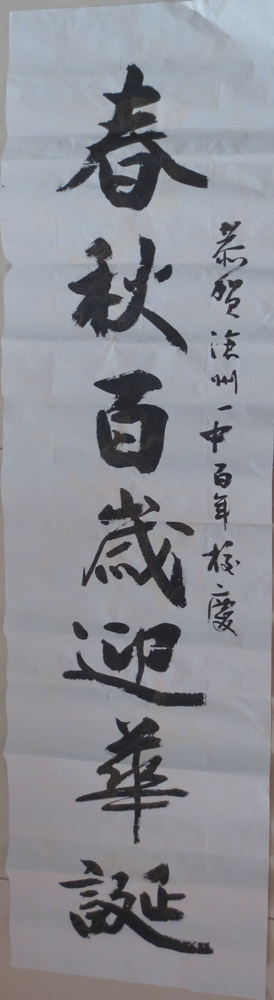 恭贺滄州一中百年校慶
春秋百歲迎華誕